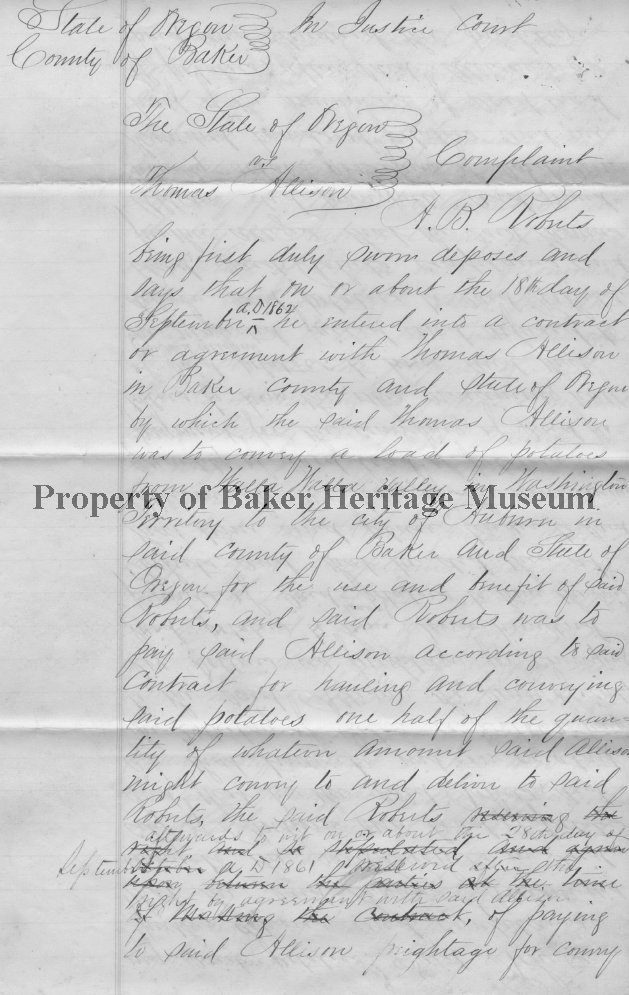 State of Oregon In Justice Court
County of Baker
The State of Oregon
vs Complaint
Thomas Allison
A. B. Roberts
being first duly sworn deposes and
says that on or about the 18th day of
a.D 1862
September he entered into a contract
or agreement with Thomas Allison
in Baker county and state of Oregon
by which the said Thomas Allison
was to convey a load of potatoes
from Walla Walla Valley in Washington
Property of Baker Heritage Museum
Territory to the city of Auburn in
said county of Baker and State of
Oregon for the use and benefit of said
Roberts, and said Roberts was to
pay said Allison according to said
Contract for hauling and conveying
said potatoes one half of the quan-
tity of whatever amount said Allison
might convey to and deliver to said
Roberts, the said Roberts reserving the
afterwards to wit on or about the 28th day of
right and it stipulated and agreed
September a D 1861 reserved
upon between the parties at the time
right by agreement with said Allison
of making the Contract, of paying
to said Allison freightage for convey